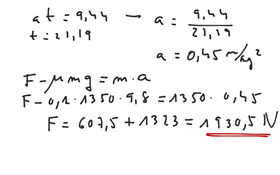 at = 9,44 — a = 9,44 / 21,19
t = 21,19
a = 0,45 m/kg²
F - μmg = m·a
F - 0,1·1350·9,8 = 1350·0,45
F = 607,5 + 1323 = 1930,5 N